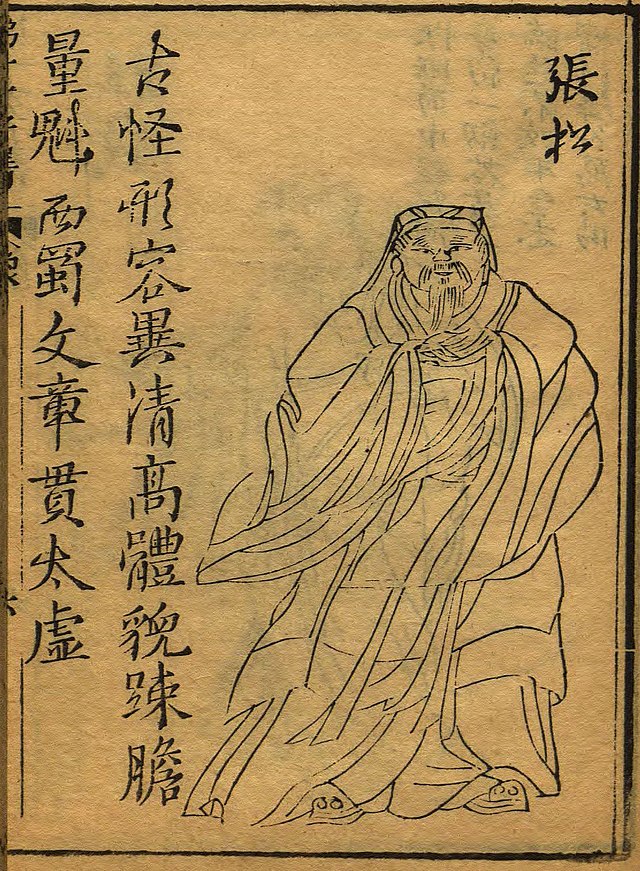 張松
古怪形容異清高體貌踈膽
量魁西蜀文章貫太虛